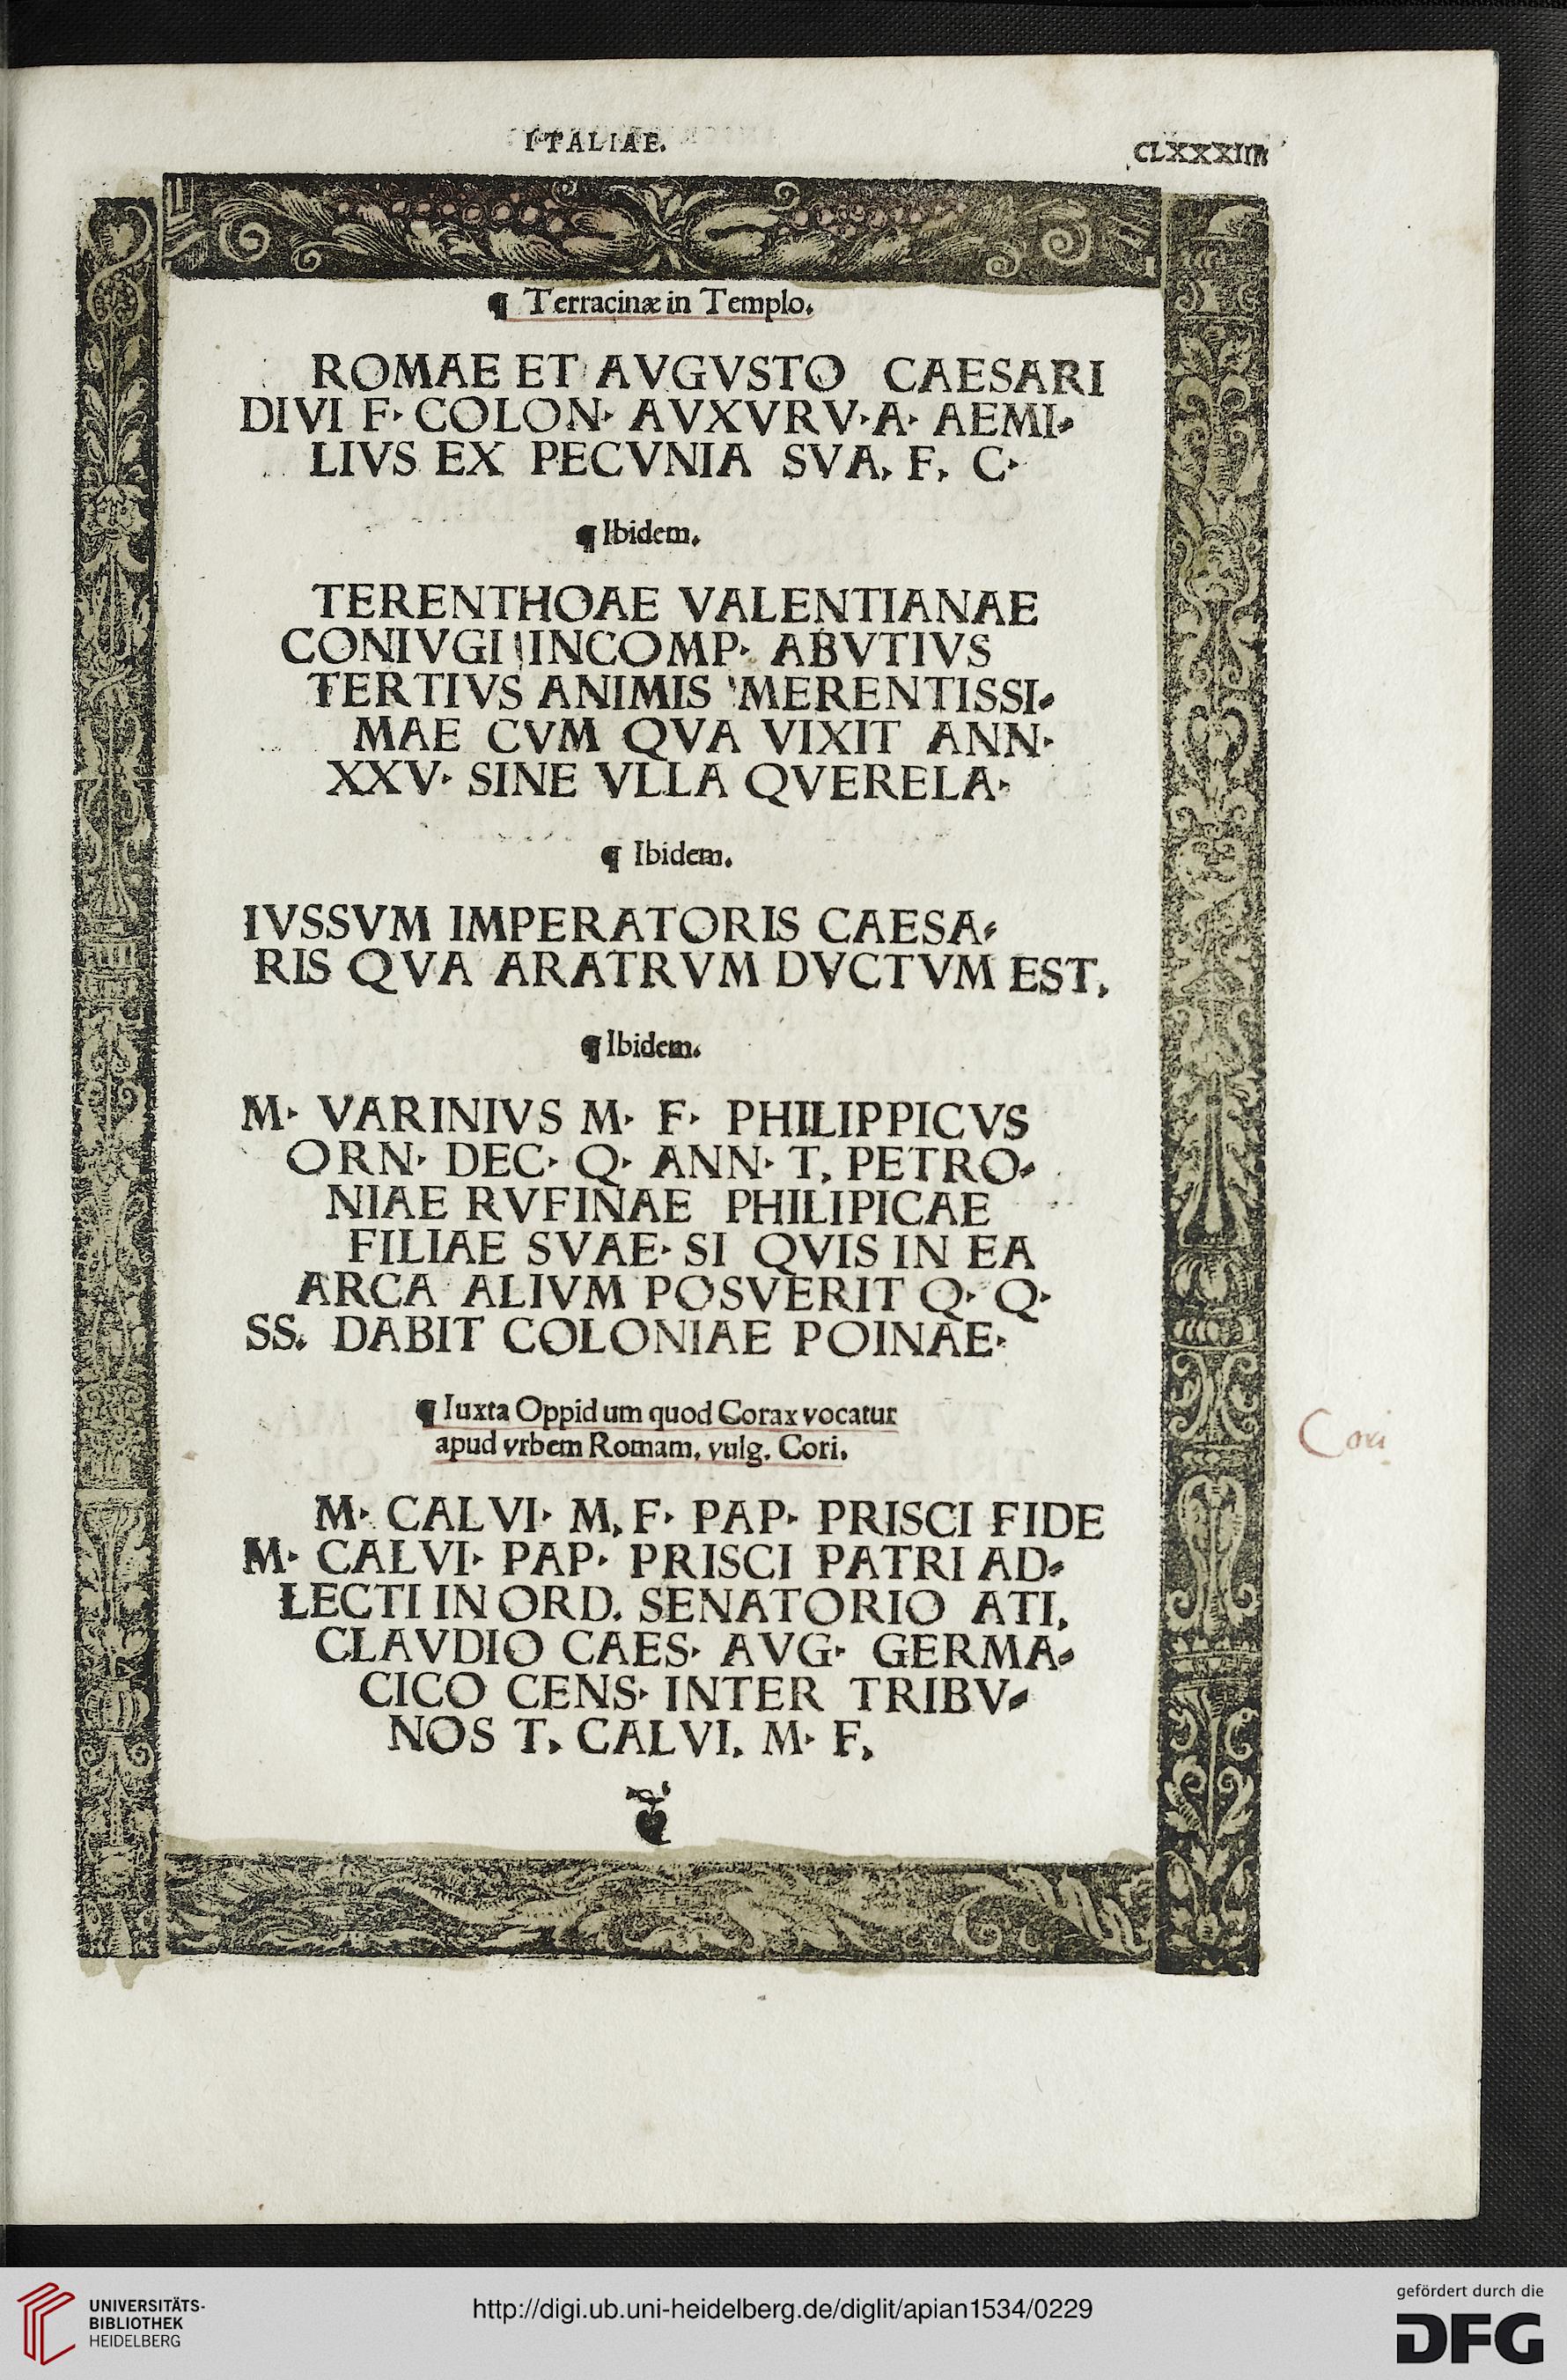 ITALIAE.
CLXXXIIII
¶ Terracinæ in Templo.
ROMAE ET AVGVSTO CAESARI
DIVI F· COLON· AVXVRV·A· AEMI-
LIVS EX PECVNIA SVA, F, C·
¶ Ibidem.
TERENTHOAE VALENTIANAE
CONIVGI INCOMP· ABVTIVS
TERTIVS ANIMIS MERENTISSI-
MAE CVM QVA VIXIT ANN·
XXV· SINE VLLA QVERELA·
¶ Ibidem.
IVSSVM IMPERATORIS CAESA-
RIS QVA ARATRVM DVCTVM EST,
¶ Ibidem.
M· VARINIVS M· F· PHILIPPICVS
ORN· DEC· Q· ANN· T, PETRO-
NIAE RVFINAE PHILIPICAE
FILIAE SVAE· SI QVIS IN EA
ARCA ALIVM POSVERIT Q· Q·
SS. DABIT COLONIAE POINAE·
¶ Iuxta Oppidum quod Corax vocatur
apud vrbem Romam, vulg. Cori.
Cori
M· CALVI· M, F· PAP· PRISCI FIDE
M· CALVI· PAP· PRISCI PATRI AD-
LECTI IN ORD. SENATORIO ATI,
CLAVDIO CAES· AVG· GERMA-
CICO CENS· INTER TRIBV-
NOS T, CALVI, M· F,
UNIVERSITÄTS-
BIBLIOTHEK
HEIDELBERG
http://digi.ub.uni-heidelberg.de/diglit/apian1534/0229
gefördert durch die
DFG